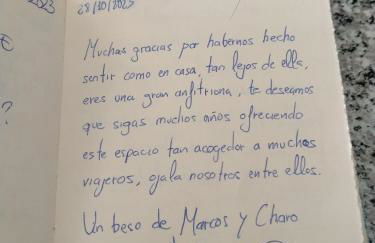 2023
28/10/2023
€
Muchas gracias por habernos hecho
sentir como en casa, tan lejos de ella,
eres una gran anfitriona, te deseamos
?
que sigas muchos años ofreciendo
este espacio tan acogedor a muchos
viajeros, ojala nosotros entre ellos.
Un beso de Marcos y Charo